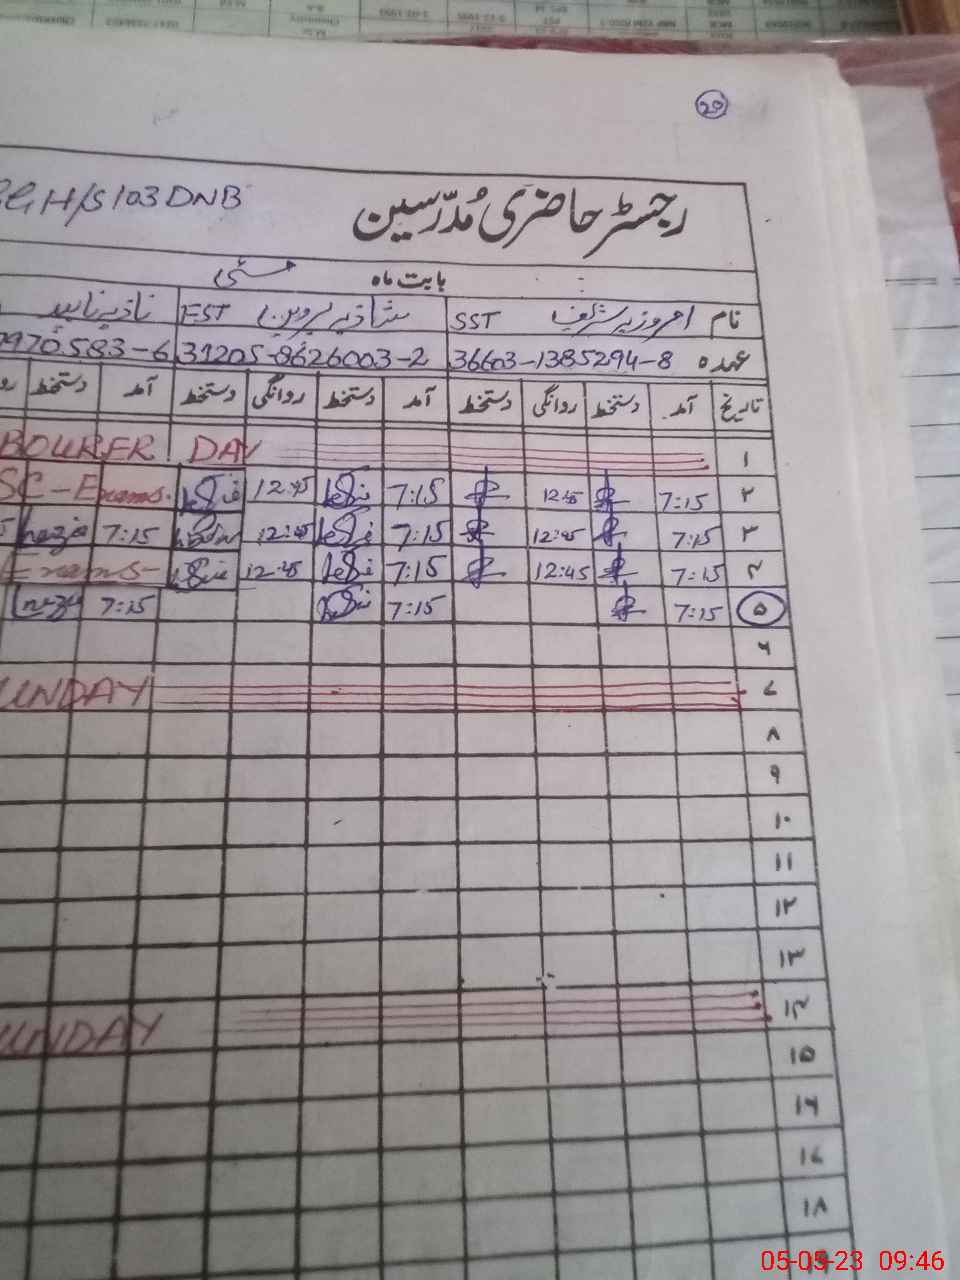 20
GGH/S 103 DNB
رجسٹر حاضری مُدرّسین
بابت ماہ مئی
نام امروزیہ شریف SST شازیہ پروین EST نازیہ
عہدہ 36603-1385294-8 31205-8626003-2 0970583-6
تاریخ آمد دستخط روانگی دستخط آمد دستخط روانگی دستخط آمد دستخط
۱ BOURER DAY
۲ 7:15 12:45 7:15 12:45 SC-Exams.
۳ 7:15 12:45 7:15 12:45 7:15
۴ 7:15 12:45 7:15 12:45 Exams-
۵ 7:15 7:15 7:15
۶
۷ UNDAY
۸
۹
۱۰
۱۱
۱۲
۱۳
۱۴ UNDAY
۱۵
۱۶
۱۷
۱۸
05-05-23 09:46